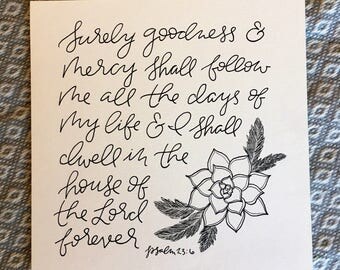 Surely goodness &
mercy shall follow
me all the days of
my life & I shall
dwell in the
house of
the Lord
forever
psalm 23:6